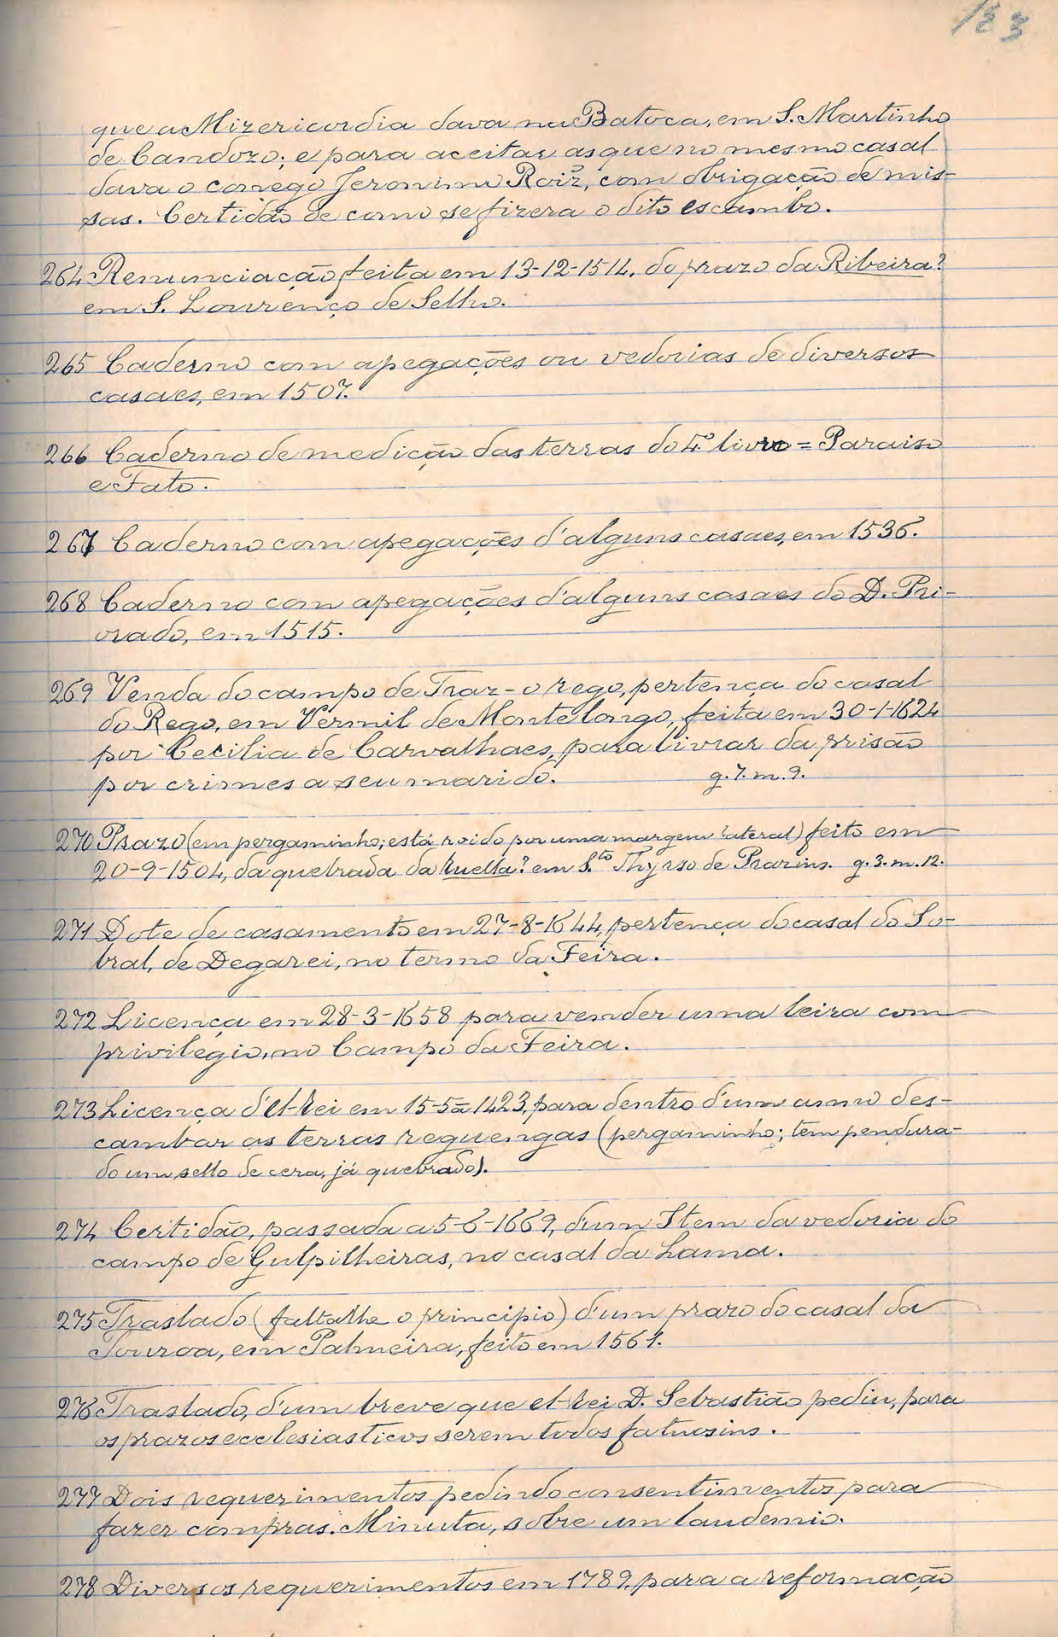 123
que a Mizericordia dava na Batoca, em S. Martinho
de Candozo; e para aceitar as que no mesmo casal
dava o conego Jeronimo Roiz, com obrigação de mis-
sas. Certidão de como se fizera o dito escambo.
264 Renunciação feita em 13-12-1514, do prazo da Ribeira?
em S. Lourenço de Selho.
265 Caderno com apegações ou vedorias de diversos
casaes, em 1507.
266 Caderno de medição das terras do 4º livro = Paraiso
e Fato.
267 Caderno com apegações d'alguns casaes, em 1536.
268 Caderno com apegações d'alguns casaes do D. Pri-
orado, em 1515.
269 Venda do campo de Traz-o rego, pertença do casal
do Rego, em Vermil de Montelongo, feita em 30-1-1624
por Cecilia de Carvalhaes, para livrar da prisão
por crimes a seu marido. g. 7. m. 9.
270 Prazo (em pergaminho; está roido por uma margem lateral) feito em
20-9-1504, da quebrada da Ruella? em S.to Thyrso de Prazins. g. 3. m. 12.
271 Dote de casamento em 27-8-1644, pertença do casal do So-
bral, de Degarei, no termo da Feira.
272 Licença em 28-3-1658 para vender uma leira com
privilegio, no Campo da Feira.
273 Licença d'el-rei em 15-5-1423, para dentro d'um anno des-
cambar as terras reguengas (pergaminho; tem pendura-
do um sello de cera, já quebrado).
274 Certidão, passada a 5-6-1669, d'um Item da vedoria do
campo de Gulpilheiras, no casal da Lama.
275 Traslado (falta-lhe o principio) d'um prazo do casal da
Touroa, em Palmeira, feito em 1561.
276 Traslado, d'um breve que el-rei D. Sebastião pediu, para
os prazos ecclesiasticos serem todos fatuosins.
277 Dois requerimentos pedindo consentimentos para
fazer compras. Minuta, sobre um laudemio.
278 Diversos requerimentos em 1789, para a reformação